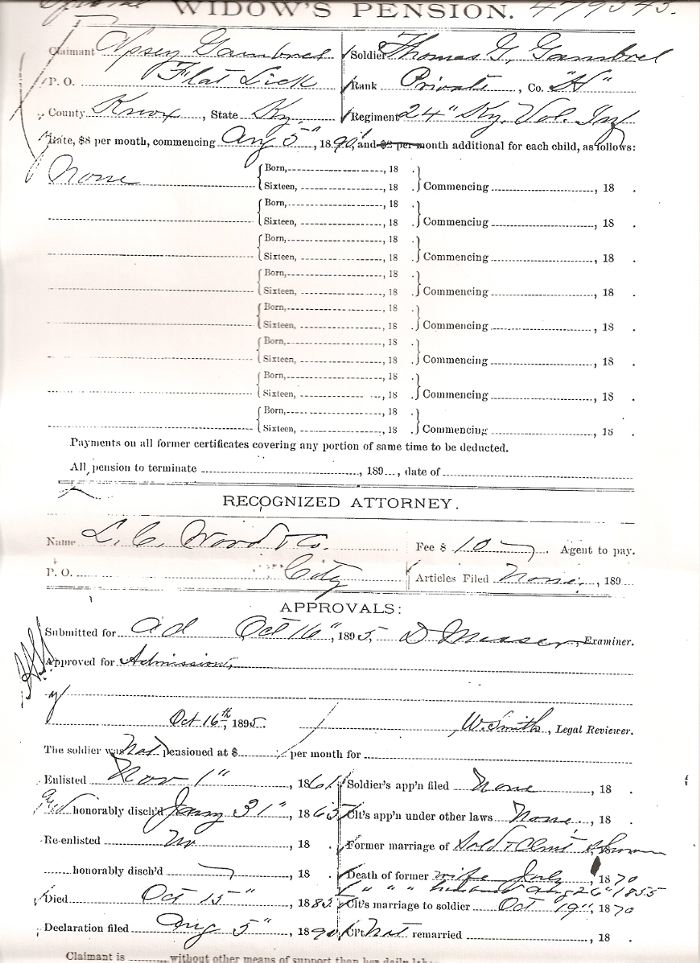 WIDOW'S PENSION. 479545.
Claimant Opsey Gambrel Soldier Thomas G. Gambrel
P. O. Flat Lick Rank Private, Co. "H"
County Knox, State Ky. Regiment 24" Ky. Vol. Inf
Rate, $8 per month, commencing Aug 5", 1890, and $2 per month additional for each child, as follows:
None Born, , 18 . Sixteen, , 18 Commencing , 18 .
Born, , 18 . Sixteen, , 18 Commencing , 18 .
Born, , 18 . Sixteen, , 18 Commencing , 18 .
Born, , 18 . Sixteen, , 18 Commencing , 18 .
Born, , 18 . Sixteen, , 18 Commencing , 18 .
Born, , 18 . Sixteen, , 18 Commencing , 18 .
Born, , 18 . Sixteen, , 18 Commencing , 18 .
Born, , 18 . Sixteen, , 18 Commencing , 18 .
Payments on all former certificates covering any portion of same time to be deducted.
All pension to terminate , 189 , date of
RECOGNIZED ATTORNEY.
Name L. C. Wood & Co. Fee $ 10 Agent to pay.
P. O. City Articles Filed None, 189
APPROVALS:
Submitted for ad Oct 16", 1895, D Messer, Examiner.
Approved for Admission,
Oct 16th 1895 W. Smith, Legal Reviewer.
The soldier was not pensioned at $ per month for
Enlisted Nov 1", 1861 Soldier's app'n filed None, 18
honorably disch'd Jany 31", 1865 Cl't's app'n under other laws None, 18
Re-enlisted No, 18 . Former marriage of Sold & Clmt shown
honorably disch'd , 18 . Death of former wife July, 1870
" " " husband Aug 26" 1855
Died Oct 15", 1882 Cl't's marriage to soldier Oct 19", 1870
Declaration filed Aug 5", 1890 Cl't not remarried , 18 .
Claimant is without other means of support than her daily lab